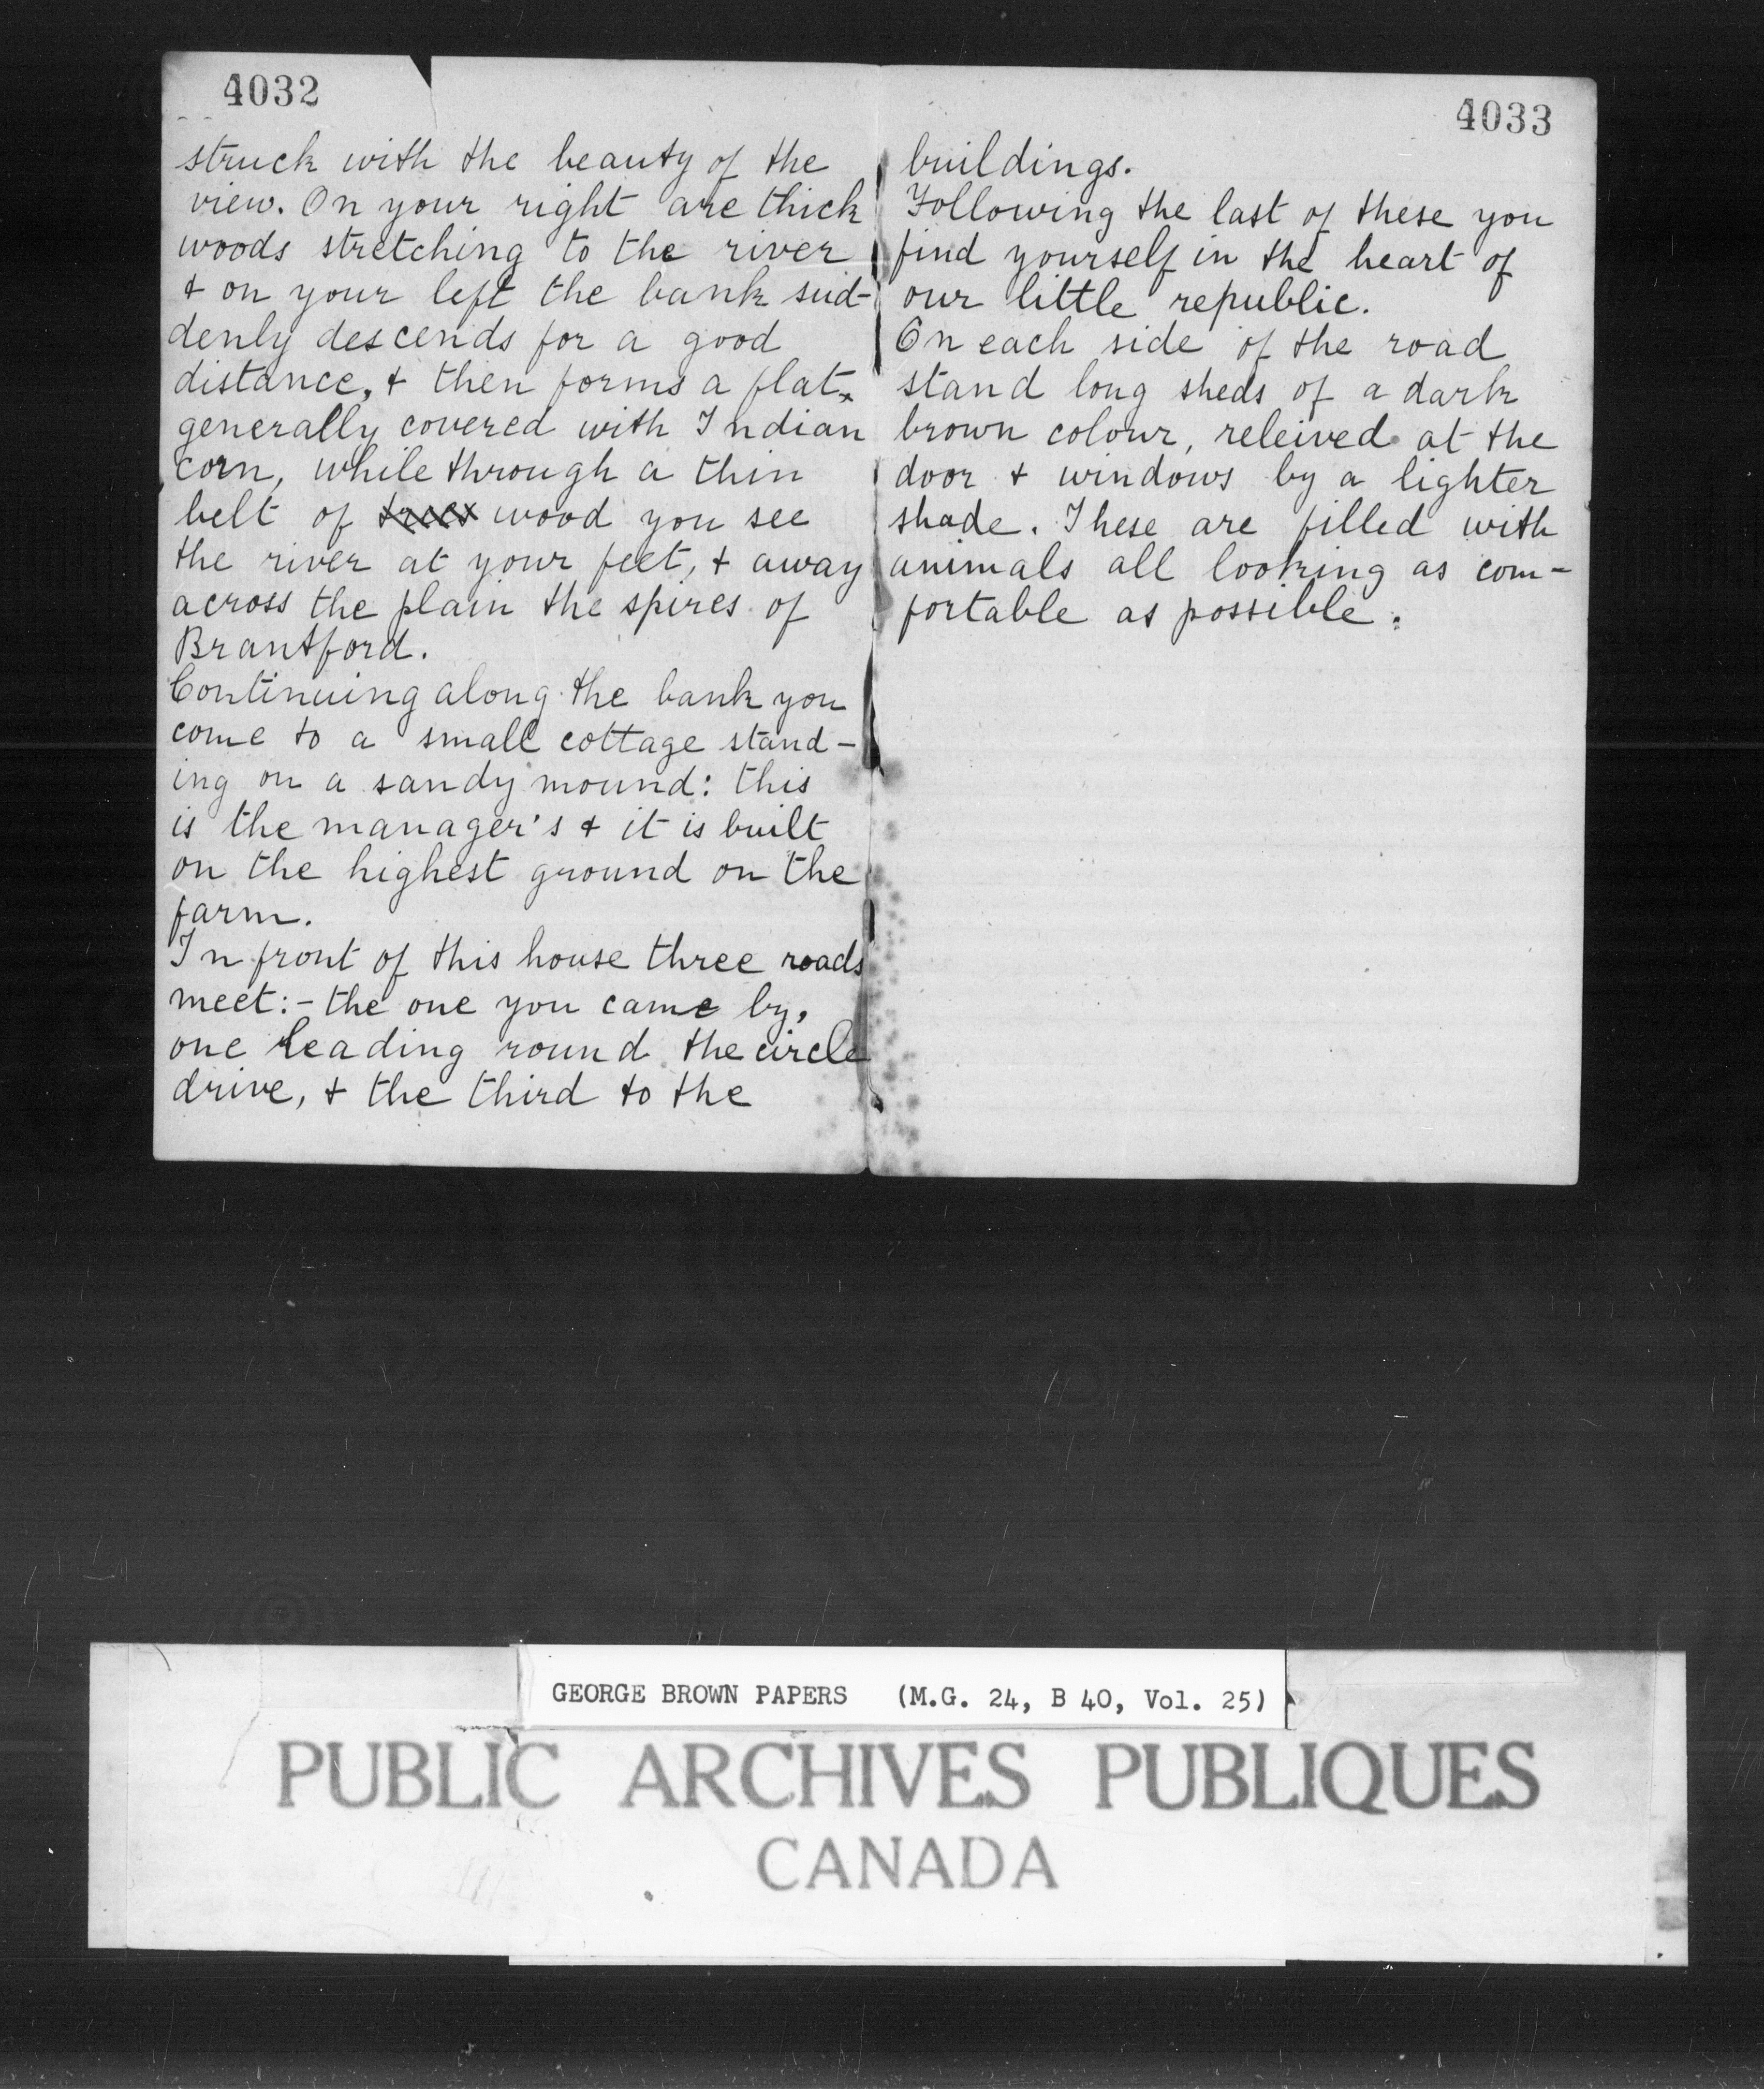 4032
struck with the beauty of the
view. On your right are thick
woods stretching to the river
& on your left the bank sud-
denly descends for a good
distance, & then forms a flat,
generally covered with Indian
corn, while through a thin
belt of trees wood you see
the river at your feet, & away
across the plain the spires of
Brantford.
Continuing along the bank you
come to a small cottage stand-
ing on a sandy mound: this
is the manager's & it is built
on the highest ground on the
farm.
In front of this house three roads
meet:- the one you came by,
one leading round the circle
drive, & the third to the
4033
buildings.
Following the last of these you
find yourself in the heart of
our little republic.
On each side of the road
stand long sheds of a dark
brown colour, releived at the
door & windows by a lighter
shade. These are filled with
animals all looking as com-
fortable as possible.
GEORGE BROWN PAPERS (M.G. 24, B 40, Vol. 25)
PUBLIC ARCHIVES PUBLIQUES
CANADA